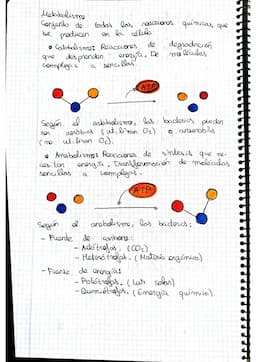 Metabolismo
Conjunto de todas las reacciones químicas que
se producen en la célula
• Catabolismo: Reacciones de degradación
que desprenden energía. De moléculas
complejas a sencillas
ATP
Según el catabolismo, las bacterias pueden
ser aerobias (utilizan O₂) o anaerobias
(no utilizan O₂).
• Anabolismo: Reacciones de síntesis que ne-
cesitan energía. Transformación de moléculas
sencillas a complejas.
ATP
Según el anabolismo, las bacterias:
- Fuente de carbono:
- Autótrofas. (CO₂)
- Heterótrofas. (Materia orgánica)
- Fuente de energía:
- Fotótrofas. (Luz solar)
- Quimiótrofas. (Energía química).